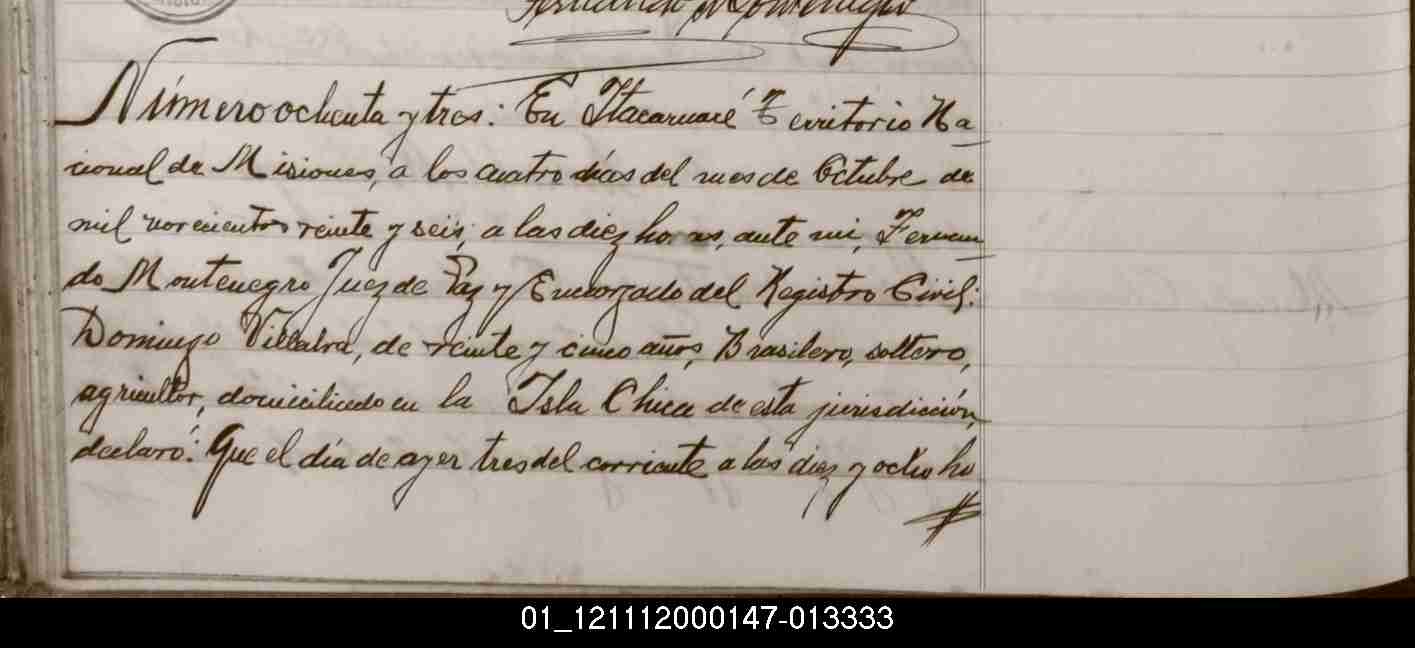 Fernando Montenegro
Número ochenta y tres: En Itacaruaré Territorio Na
cional de Misiones, a los cuatro días del mes de Octubre de
mil novecientos veinte y seis, a las diez horas, ante mi, Fernan
do Montenegro Juez de Paz y Encargado del Registro Civil:
Domingo Villalva, de veinte y cinco años, Brasilero, soltero,
agricultor, domiciliado en la Isla Chica de esta jurisdicción,
declaró: Que el día de ayer tres del corriente a las diez y ocho ho
01_121112000147-013333